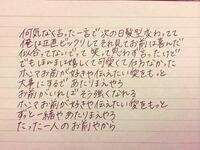 何気なく言った一言で次の日髪型変わってて
俺は正直ビックリしてそれ見てお前は喜んだ
似合ってないぜって笑って思わず言ったけど
でもほんまに嬉しくて可愛くて仕方なかった
ホンマお前が好きや伝えたい愛をもっと
大事にするで あたりまえやろ
お前がいればそう強くなれる
ホンマお前が好きや伝えたい愛をもっと
ずっと一緒や あたりまえやろ
たった一人のお前やから